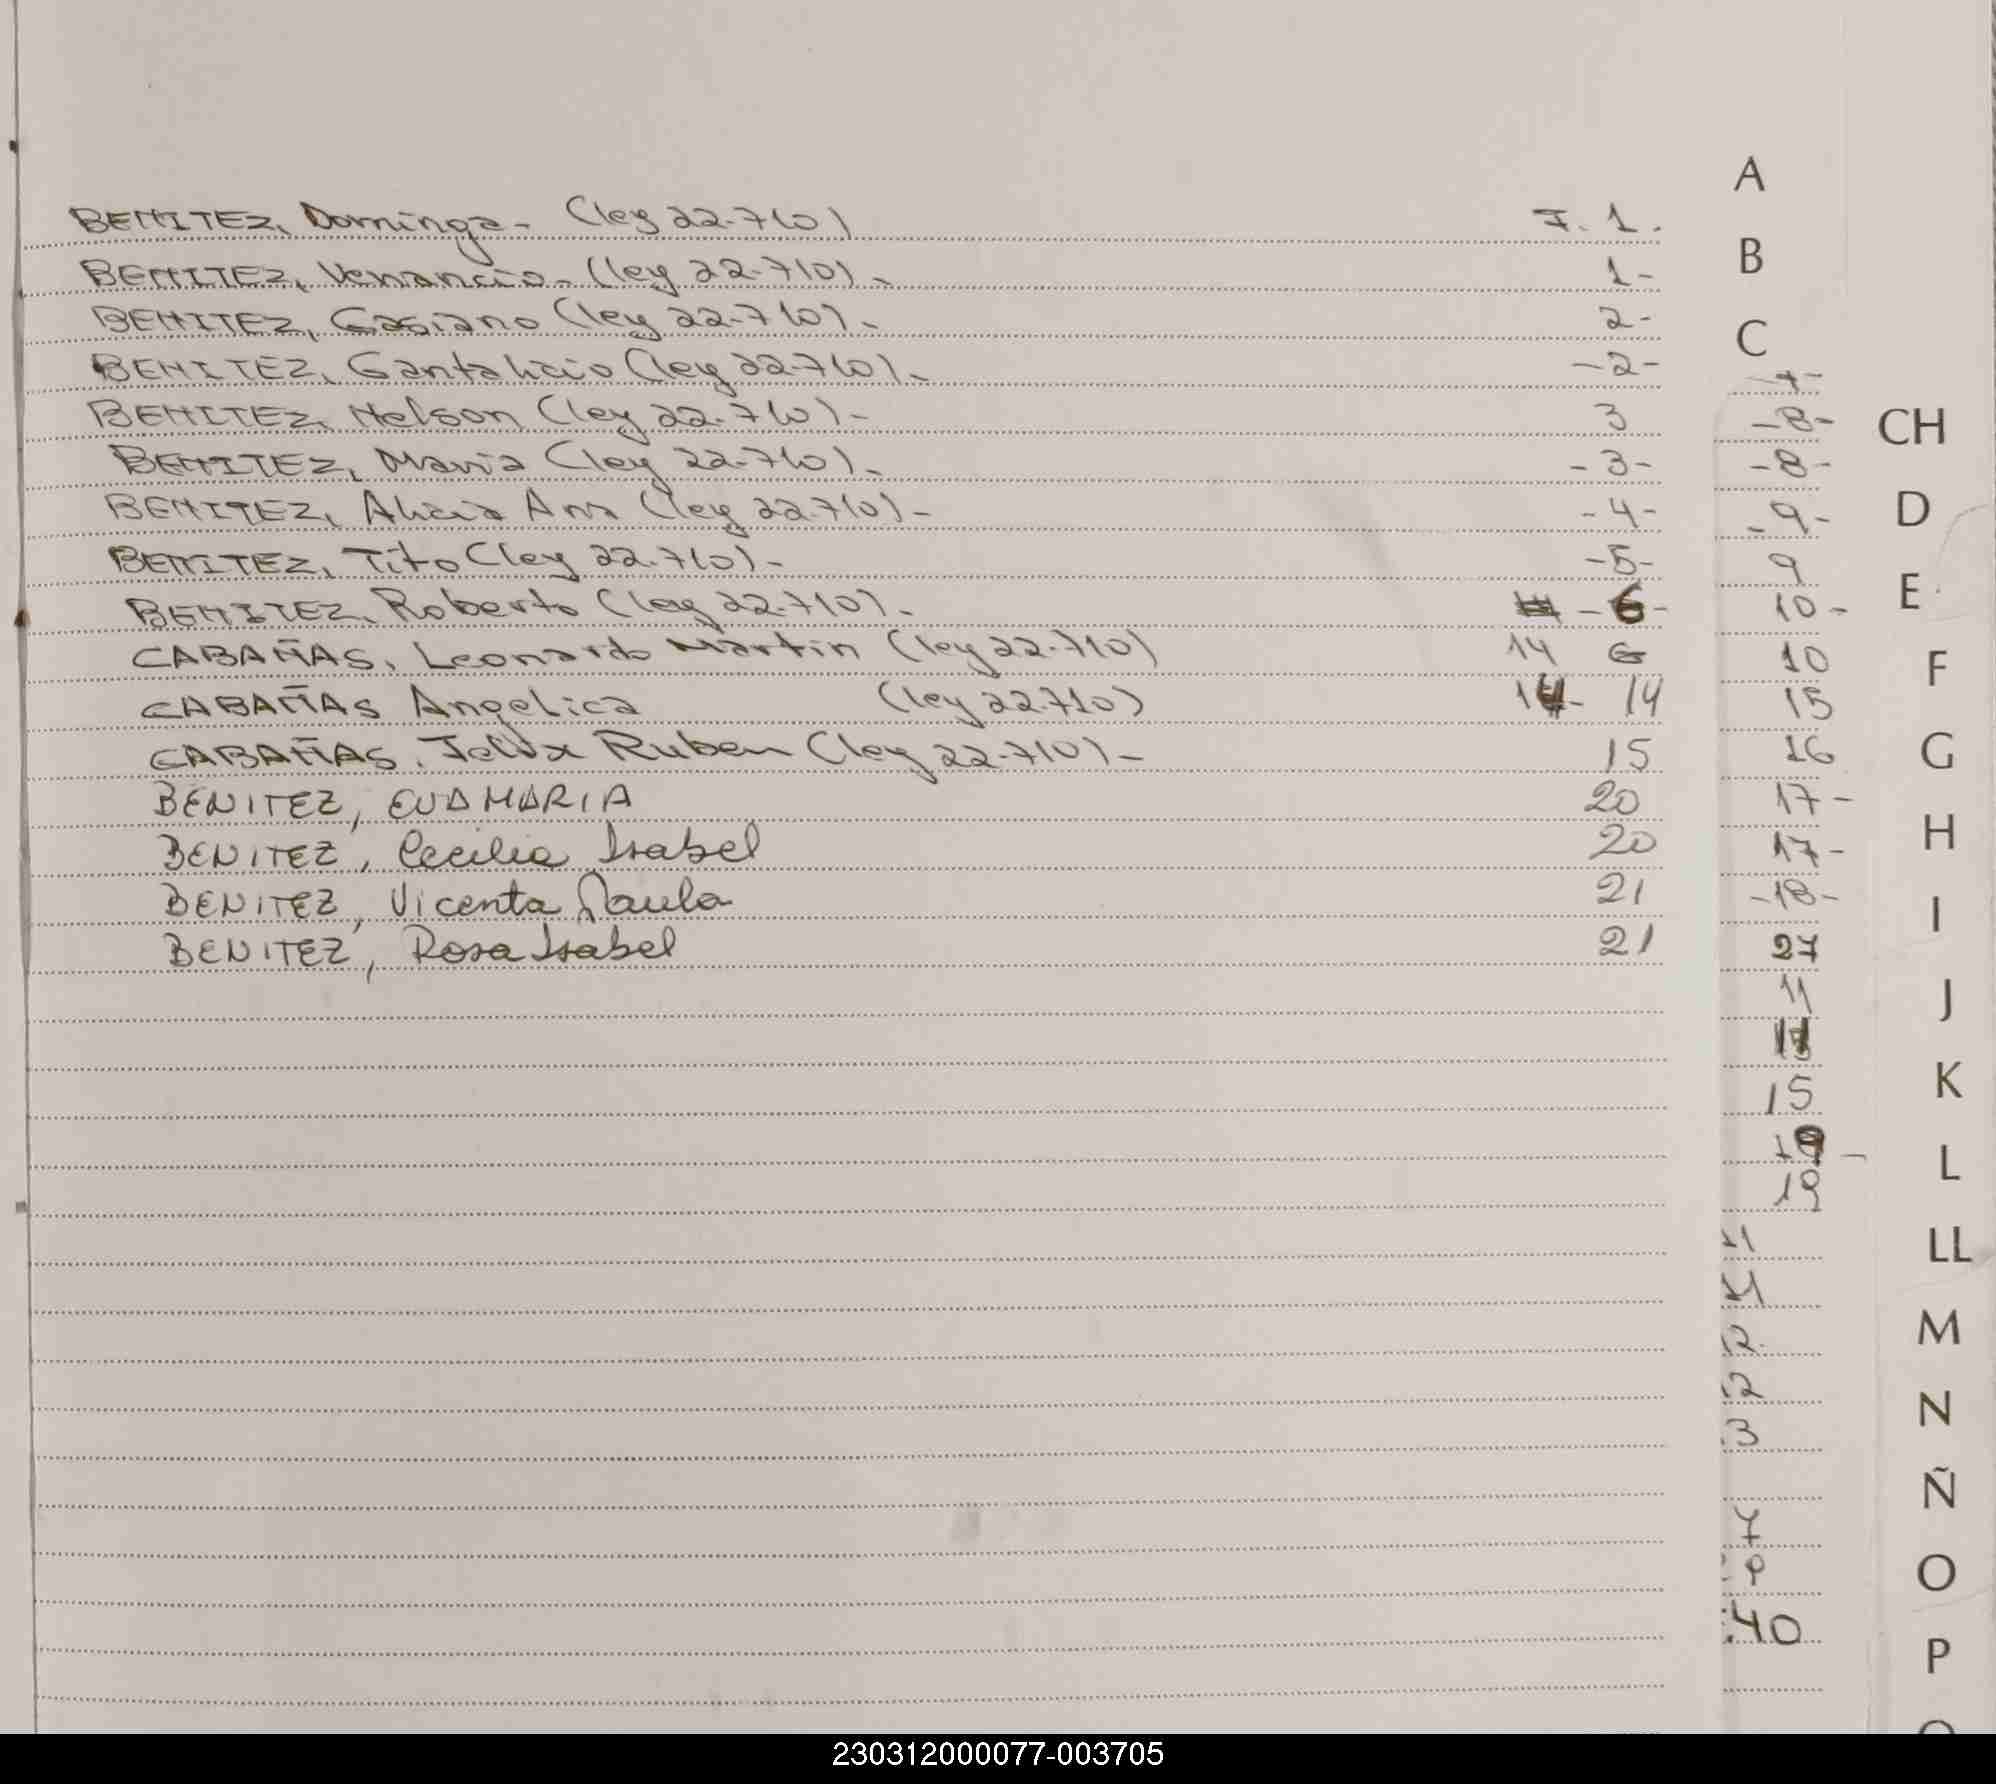 BENITEZ, Dominga- (ley 22.710) F. 1.
BENITEZ, Venancio- (ley 22.710)- 1-
BENITEZ, Casiano (ley 22.710)- 2-
BENITEZ, Cantalicio (ley 22.710)- -2-
BENITEZ, Nelson (ley 22.710)- 3
BENITEZ, Maria (ley 22.710)- -3-
BENITEZ, Alicia Ana (ley 22.710)- -4-
BENITEZ, Tito (ley 22.710)- -5-
BENITEZ, Roberto (ley 22.710)- -6-
CABAÑAS, Leonardo Martin (ley 22.710) 14 6
CABAÑAS Angelica (ley 22.710) 14- 14
CABAÑAS, Felix Ruben (ley 22.710)- 15
BENITEZ, EVA MARIA 20
BENITEZ, Cecilia Isabel 20
BENITEZ, Vicenta Paula 21
BENITEZ, Rosa Isabel 21
A
B
C
CH
D
E
F
G
H
I
J
K
L
LL
M
N
Ñ
O
P
-8-
-8-
-9-
9
10-
10
15
16
17-
17-
-18-
27
11
15
19
19
40
230312000077-003705